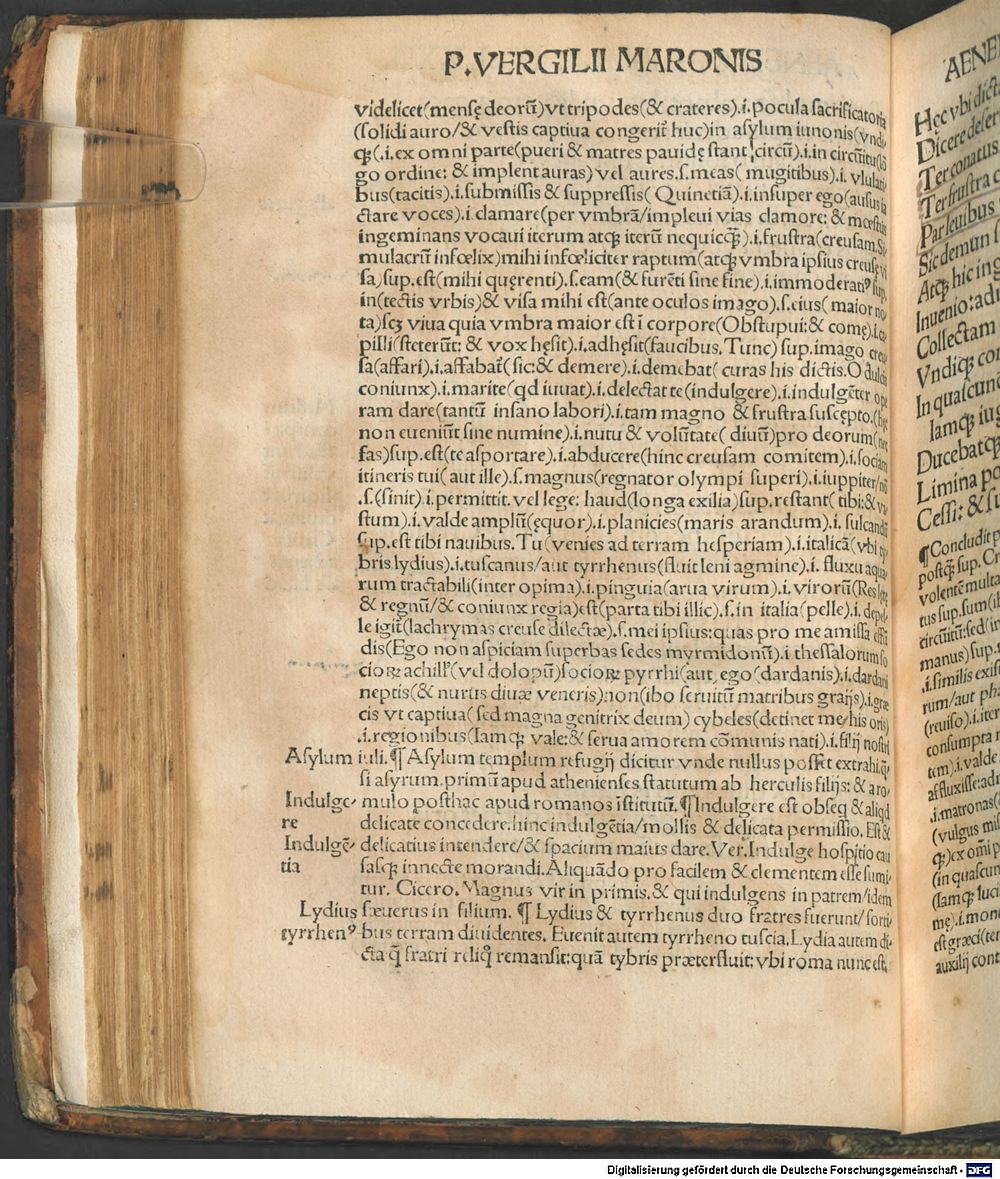 P.VERGILII MARONIS
videlicet(mensę deorũ)vt tripodes(& crateres).i.pocula sacrificatoria
(solidi auro/& vestis captiua congerit᷑ huc)in asylum iunonis(vndi
qꝫ(.i.ex omni parte(pueri & matres pauidę stant circũ).i.in circũitu(lõ
go ordine: & implent auras) vel aures.s.meas( mugitibus).i.vlulati
bus(tacitis).i.submissis & suppressis( Quinetiã).i.insuper ego(ausus ia
ctare voces).i.clamare(per vmbrã/impleui vias clamore: & mœstus
ingeminans vocaui iterum atqꝫ iterũ nequicqꝫ̃).i.frustra(creusam.Si
mulacrũ infœlix)mihi infœliciter raptum(atqꝫ vmbra ipsius creusę vi
sa)sup.est(mihi quęrenti).s.eam(& furẽti sine fine).i.immoderatiꝰ sup.
in(tectis vrbis)& visa mihi est(ante oculos imago).s.eius( maior no
ta)scꝫ viua quia vmbra maior est ĩ corpore(Obstupui:& comę).i.ca
pilli(steterũt: & vox hęsit).i.adhęsit(faucibus.Tunc) sup.imago creu
sa(affari).i.affabat᷑( sic:& demere).i.demebat( curas his dictis.O dulcis
coniunx).i.marite(qd iuuat).i.delectat te(indulgere).i.indulgẽter ope
ram dare(tantũ insano labori).i.tam magno & frustra suscępto.(hęc
non eueniũt sine numine).i.nutu & volũtate( diuũ)pro deorum(nec
fas)sup.est(te asportare).i.abducere(hinc creusam comitem).i.sociam
itineris tui( aut ille).s.magnus(regnator olympi superi).i.iuppiter/nõ
.s.(sinit).i.permittit.vel lege: haud(longa exilia)sup.restant( tibi:& va
stum).i.valde amplũ(ęquor).i.planicies(maris arandum).i. sulcandũ
sup.est tibi nauibus.Tu(venies ad terram hesperiam).i.italicã(vbi ty
bris lydius).i.tuscanus/aut tyrrhenus(fluit leni agmine).i. fluxu aqua
rum tractabili(inter opima).i.pinguia(arua virum).i.virorũ(Res lętę
& regnũ/& coniunx regia)est(parta tibi illic).s.in italia(pelle).i.depel
le igit᷑(lachrymas creuse dilectæ).s.mei ipsius:quas pro me amissa effũ
dis(Ego non aspiciam superbas sedes myrmidonũ).i.thessalorum so
cioꝝ achill᷑(vel dolopũ)socioꝝ pyrrhi(aut ego(dardanis).i.dardani
neptis(& nurus diuæ veneris):non(ibo seruitũ matribus graijs).i.græ
cis vt captiua( sed magna genitrix deum) cybeles(detinet me/his oris)
.i.regionibus(Iamqꝫ vale:& serua amorem cõmunis nati).i.filij nostri
Asylum iuli.¶ Asylum templum refugij dicitur vnde nullus posset extrahi.q̃
si asyrum.primũ apud athenienses statutum ab herculis filijs: & a ro-
Indulge- mulo posthac apud romanos ĩstitutũ. ¶ Indulgere est obseq & aliqd
re delicate concedere.hinc indulgẽtia/mollis & delicata permissio. Est &
Indulgẽ- delicatius intendere/& spacium maius dare.Ver.Indulge hospitio cau
tia sasqꝫ innecte morandi.Aliquãdo pro facilem & clementem esse sumi-
tur. Cicero.Magnus vir in primis.& qui indulgens in patrem/idem
Lydius sæuerus in filium. ¶ Lydius & tyrrhenus duo fratres fuerunt/sorti-
tyrrhenꝰ bus terram diuidentes. Euenit autem tyrrheno tuscia.Lydia autem di-
cta q̃ fratri reliq̃ remansit:quã tybris præterfluit:vbi roma nunc est.
AENE
Hęc vbi dicta
Dicere deser
Ter conatus
Ter frustra c
Par leuibus
Sic demun s
Atqꝫ hic ing
Inuenio:adm
Collectam
Vndiqꝫ con
In quascunq
Iamqꝫ iug
Ducebatqꝫ
Limina po
Cessi: & su
¶ Concludit p
postqꝫ̃ sup. Cr
volentẽ multa
tus sup.sum(ib
circũitũ:sed(im
manus)sup.s
.i.similis exis
rum/aut pha
(reuiso).i.iter
consumpta n
tem).i.valde
affluxisse:adm
.i.matronas(
(vulgus mis
qꝫ)ex omi p
(in quascun
(Iamqꝫ luci
mę).i.mon
est græci(ten
auxilij cont
Digitalisierung gefördert durch die Deutsche Forschungsgemeinschaft - DFG